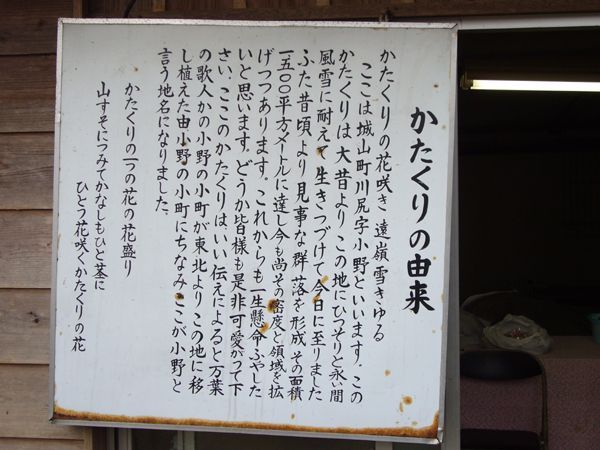 かたくりの由来
かたくりの花咲き 遠嶺雪きゆる
ここは城山町川尻字小野といいます．この
かたくりは 大昔より この地にひっそりと永い間
風雪に耐えて 生きつづけて今日に至りました
ふた昔頃より 見事な群落を形成 その面積
一五〇〇平方メートルに達し今も尚その密度と領域を拡
げつつあります．これからも一生懸命ふやした
いと思います．どうか皆様も是非可愛がって下
さい．ここのかたくりは、いい伝えによると万葉
の歌人かの小野の小町が東北より この地に移
し植えた由小野の小町にちなみ ここが小野と
言う地名になりました．
かたくりの一つの花の花盛り
山すそにつみてかなしもひと茎に
ひとつ花咲くかたくりの花